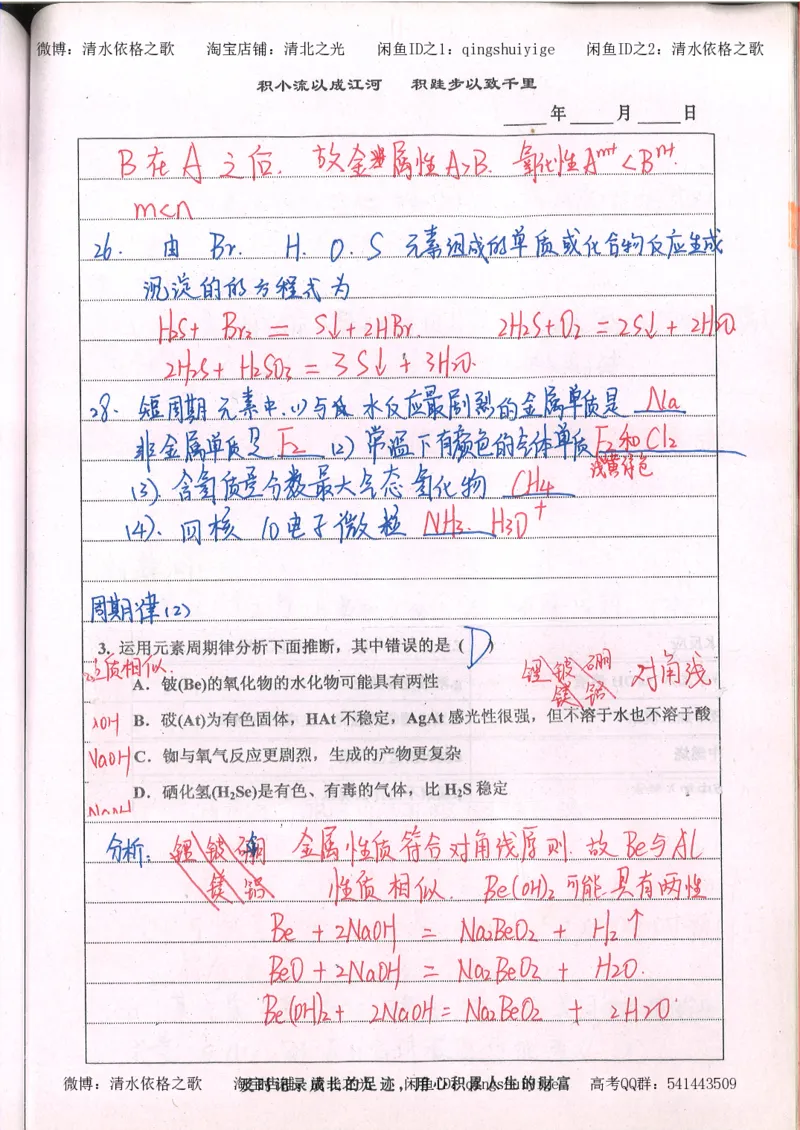 微博：清水依格之歌 淘宝店铺：清北之光 闲鱼ID之1：qingshuiyige 闲鱼ID之2：清水依格之歌
积小流以成江河 积跬步以致千里
____年____月____日
B在A之后. 故金属性A>B. 氧化性Aᵐ⁺<Bⁿ⁺.
m<n
26. 由 Br. H. O. S 元素组成的单质或化合物反应生成
沉淀的的方程式为
H₂S+ Br₂ = S↓+2HBr. 2H₂S+O₂ = 2S↓+2H₂O
2H₂S+ H₂SO₃ = 3S↓ + 3H₂O.
28. 短周期元素中.(1)与 水反应最剧烈的金属单质是 Na
非金属单质是 F₂ (2) 常温下有颜色的气体单质 F₂和Cl₂
浅黄绿色
(3). 含氢质量分数最大气态氢化物 CH₄
(4). 四核 10电子微粒 NH₃. H₃O⁺
周期律(2)
3. 运用元素周期律分析下面推断，其中错误的是（D）
性质相似. 锂 铍 硼 对角线
镁 铝
A．铍(Be)的氧化物的水化物可能具有两性
B．砹(At)为有色固体，HAt 不稳定，AgAt 感光性很强，但不溶于水也不溶于酸
NaOH C．铷与氧气反应更剧烈，生成的产物更复杂
D．硒化氢(H₂Se)是有色、有毒的气体，比 H₂S 稳定
分析: 锂 铍 硼 金属性质符合对角线原则. 故Be与Al
镁 铝 性质相似. Be(OH)₂可能具有两性
Be + 2NaOH = Na₂BeO₂ + H₂↑
BeO + 2NaOH = Na₂BeO₂ + H₂O.
Be(OH)₂+ 2NaOH = Na₂BeO₂ + 2H₂O
微博：清水依格之歌 及时记录成长的足迹，用心积累人生的财富 高考QQ群：541443509